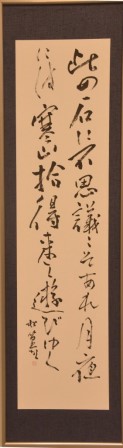 此の石に不思議こそあれ月夜
には寒山拾得来て遊びゆく